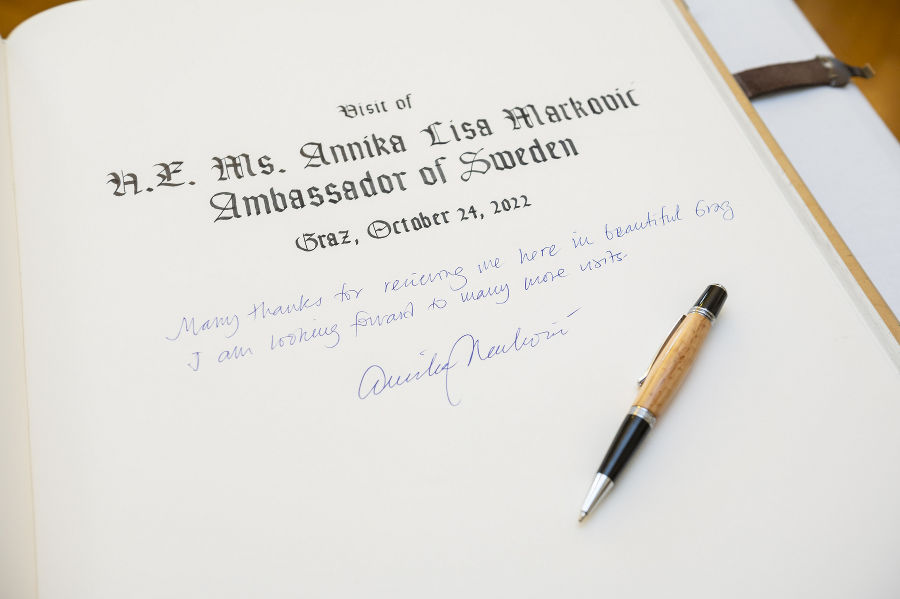 Visit of
H.E. Ms. Annika Lisa Markovic
Ambassador of Sweden
Graz, October 24, 2022
Many thanks for recieving me here in beautiful Graz
I am looking forward to many more visits.
Annika Markovic